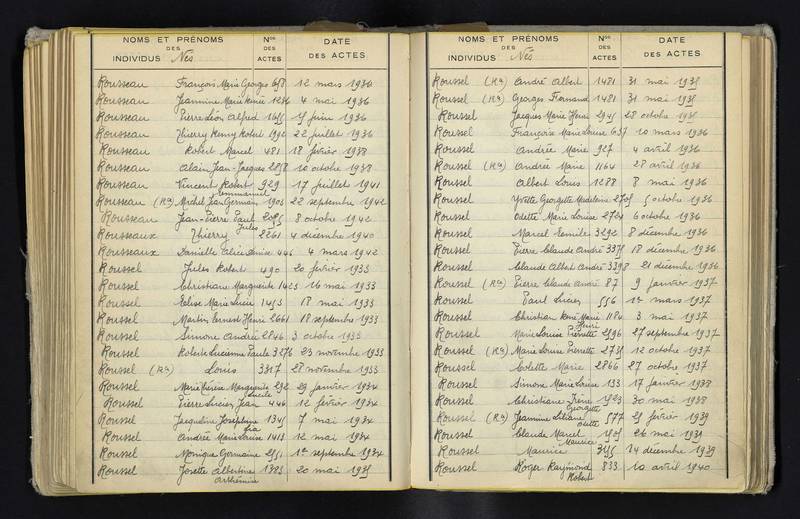 NOMS ET PRÉNOMS
DES
INDIVIDUS Nés
Nos
DES
ACTES
DATE
DES ACTES
Rousseau François Marie Georges 658 12 mars 1936
Rousseau Jeannine Marie Renée 1236 4 mai 1936
Rousseau Pierre Léon Alfred 1655 15 juin 1936
Rousseau Thierry Remy Robert 1992 22 juillet 1936
Rousseau Robert Marcel 481 18 février 1938
Rousseau Alain Jean-Jacques 2858 10 octobre 1938
Rousseau Vincent Robert 929 17 juillet 1941
Emmanuel
Rousseau (Rn) Michel Jean Germain 1906 22 septembre 1942
Rousseau Jean-Pierre Paul 2085 8 octobre 1942
Jules
Rousseaux Thierry 2261 4 décembre 1940
Rousseaux Danielle Alice Denise 446 4 mars 1942
Roussel Jules Robert 490 20 février 1933
Roussel Christiane Marguerite 1423 16 mai 1933
Roussel Elise Marie Lucie 1453 18 mai 1933
Roussel Martin Ernest Henri 2661 18 septembre 1933
Roussel Simone André 2846 3 octobre 1933
Roussel Roberte Lucienne Paule 3276 23 novembre 1933
Roussel (Rn) Louis 3317 28 novembre 1933
Roussel Marie Thérèse Marguerite 292 29 janvier 1934
Lucile
Roussel Pierre Lucien Jean 446 12 février 1934
Roussel Jacqueline Joséphine 1345 7 mai 1934
Roussel Andrée Marie Louise 1413 12 mai 1934
Roussel Monique Germaine 2551 1er septembre 1934
Roussel Josette Albertine 1385 20 mai 1935
Arthémise
NOMS ET PRÉNOMS
DES
INDIVIDUS Nés
Nos
DES
ACTES
DATE
DES ACTES
Roussel (Rn) André Albert 1481 31 mai 1935
Roussel (Rn) Georges Fernand 1481 31 mai 1935
Roussel Jacques Marie Henri 2945 28 octobre 1935
Roussel Françoise Marie Louise 637 10 mars 1936
Roussel Andrée Marie 927 4 avril 1936
Roussel (Rn) Andrée Marie 1164 28 avril 1936
Roussel Albert Louis 1288 8 mai 1936
Roussel Yvette Georgette Madeleine 2705 5 octobre 1936
Roussel Odette Marie Louise 2724 6 octobre 1936
Roussel Marcel Emile 3290 8 décembre 1936
Roussel Pierre Claude André 3375 18 décembre 1936
Roussel Claude Albert André 3398 21 décembre 1936
Roussel (Rn) Pierre Claude André 87 9 janvier 1937
Roussel Paul Lucien 556 1er mars 1937
Roussel Christian René Marie 1184 3 mai 1937
Henri
Roussel Marie Louise Pierrette 2596 27 septembre 1937
Roussel (Rn) Marie Louise Pierrette 2735 12 octobre 1937
Roussel Colette Marie 2866 27 octobre 1937
Roussel Simone Marie Louise 133 17 janvier 1938
Roussel Christiane Irène 1523 30 mai 1938
Georgette
Roussel (Rn) Jeannine Liliane 577 25 février 1939
Odette
Roussel Claude Marcel 1505 26 mai 1939
Maurice
Roussel Maurice 3455 14 décembre 1939
Roussel Roger Raymond 833 10 avril 1940
Robert